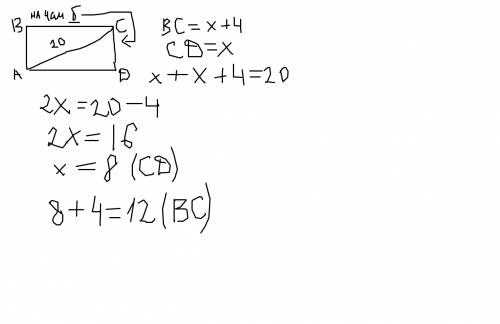 на 4см б
B C BC = x+4
20 CD=x
A D x+x+4=20
2x=20-4
2x=16
x=8 (CD)
8+4=12(BC)